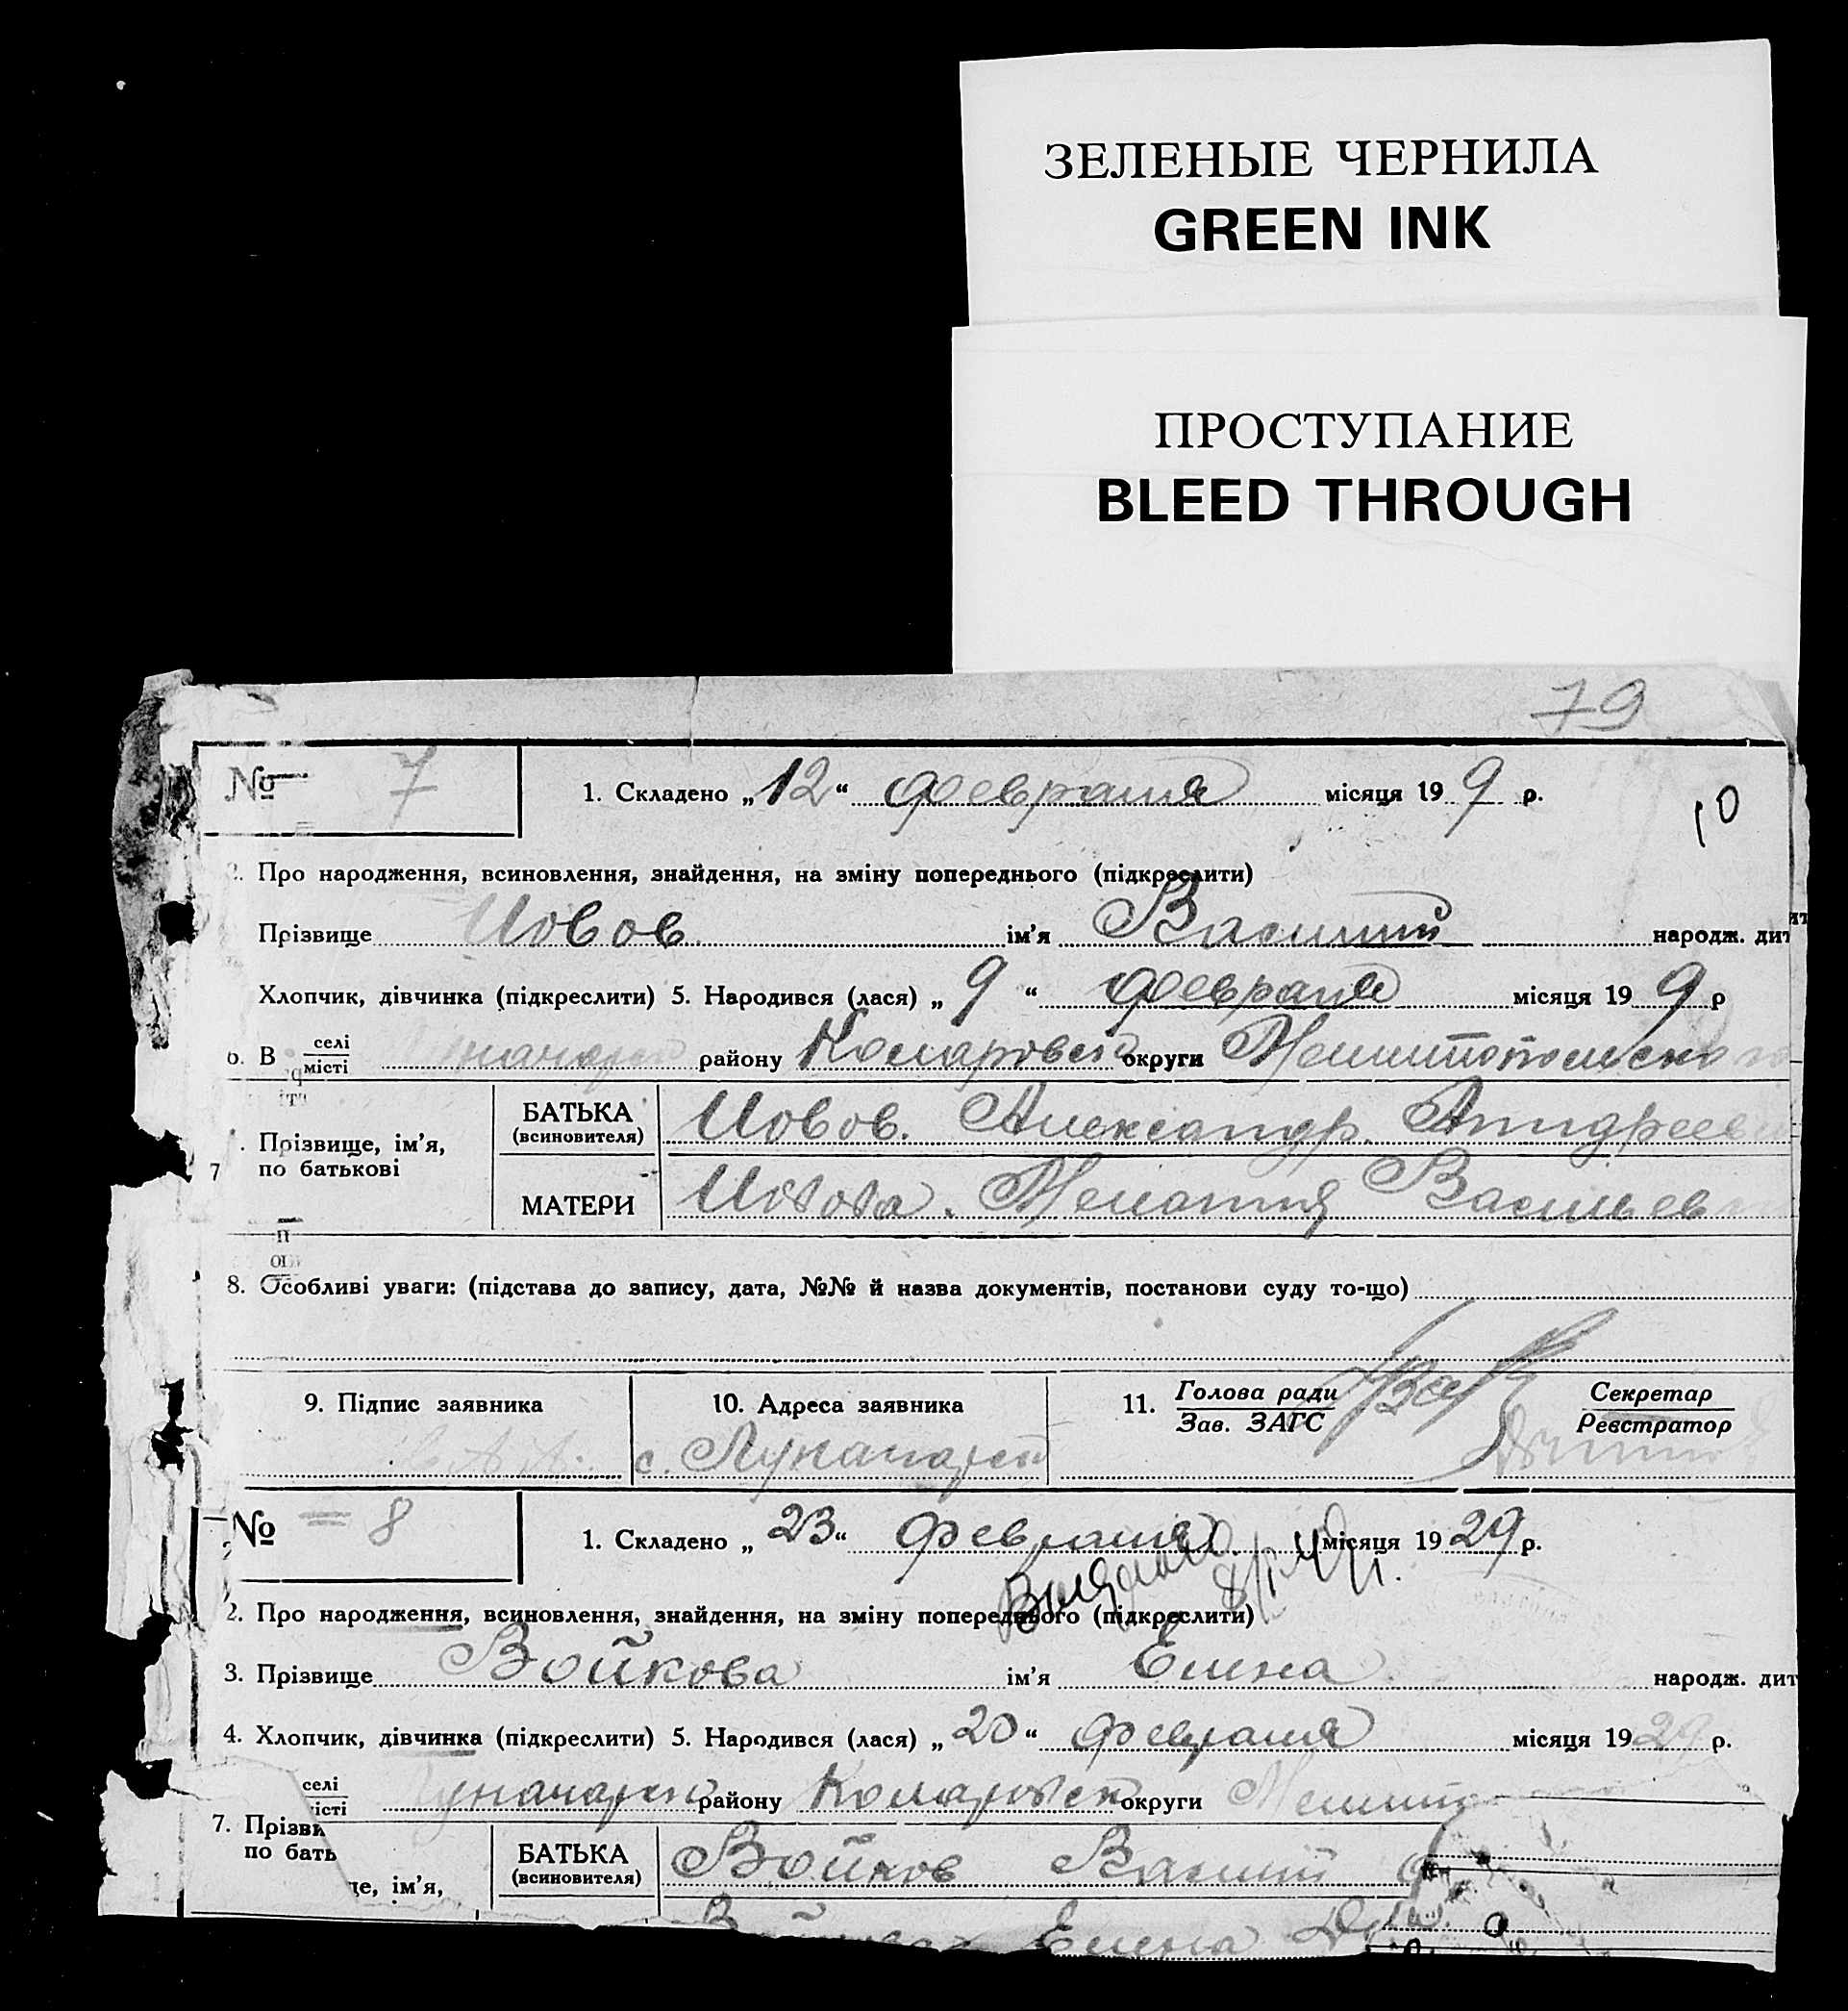 ЗЕЛЕНЫЕ ЧЕРНИЛА
GREEN INK
ПРОСТУПАНИЕ
BLEED THROUGH
79
№ 7 1. Складено „12“ февраля місяця 199 р.
10
2. Про народження, всиновлення, знайдення, на зміну попереднього (підкреслити)
Прізвище Иовов ім'я Василий народж. дит
Хлопчик, дівчинка (підкреслити) 5. Народився (лася) „9“ февраля місяця 199 р
6. В селі/місті району Комаровск округи Мелитопольского
7. Прізвище, ім'я, по батькові
БАТЬКА (всиновителя) Иовов. Александр. Андреев
МАТЕРИ Иовова. Мелания Васильев
8. Особливі уваги: (підстава до запису, дата, №№ й назва документів, постанови суду то-що)
9. Підпис заявника 10. Адреса заявника 11. Голова ради/Зав. ЗАГС Секретар/Реєстратор
с. Луначарск
№ 8 1. Складено „23“ февраля місяця 1929 р.
2. Про народження, всиновлення, знайдення, на зміну попереднього (підкреслити)
3. Прізвище Войкова ім'я Елена народж. дит
4. Хлопчик, дівчинка (підкреслити) 5. Народився (лася) „20“ февраля місяця 1929 р.
селі/місті Луначарск району Комаровск округи Мелит
7. Прізви
по бать
це, ім'я,
БАТЬКА (всиновителя) Войков Василий
Елена